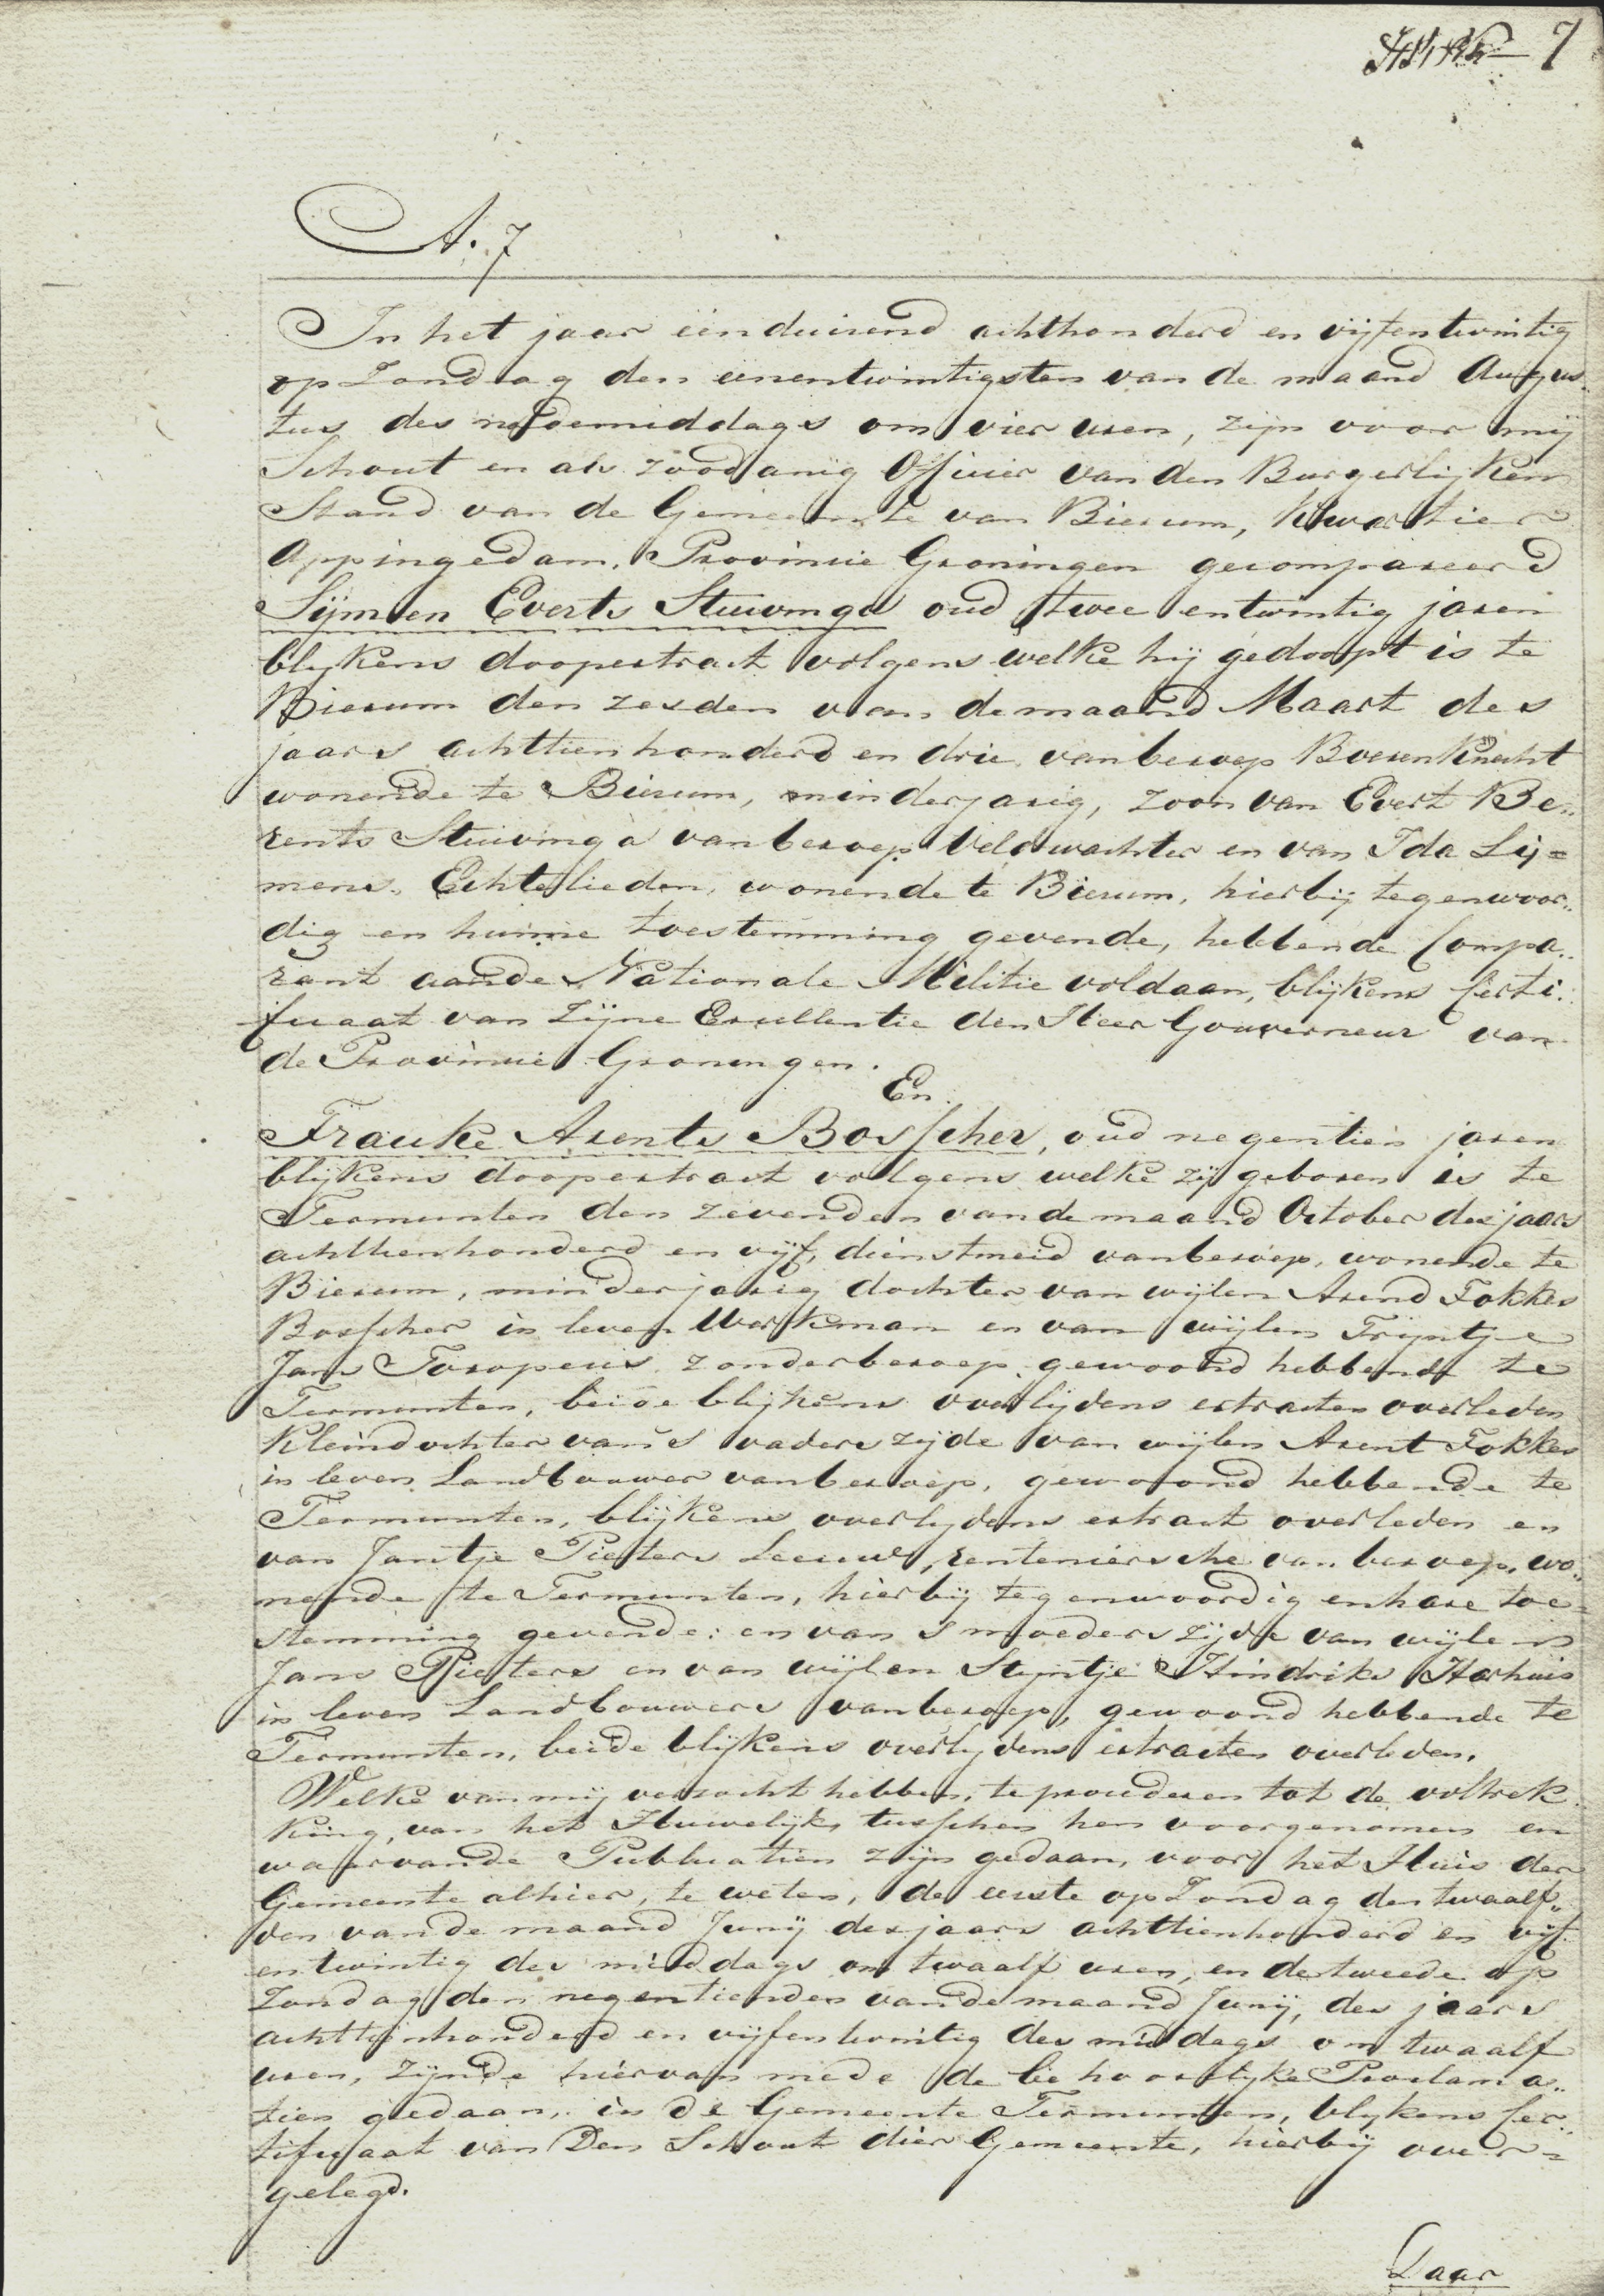 7
A. 7
In het jaar eénduisend achthonderd en vijfentwintig
op Zondag den eenentwintigsten van de maand Augus„
tus des nademiddags om vier uren, zijn voor mij
Schout en als zoodanig Officier van den Burgerlijken
Stand van de Gemeente van Bierum, Kwartier
Appingedam, Provincie Groningen gecompareerd
Sijmen Everts Stuivinga oud twee entwintig jaren
blykens doopextract volgens welke hij gedoopt is te
Bierum den zesden van de maand Maart des
jaars achttienhonderd en drie, van beroep Boerenknecht
wonende te Bierum, minderjarig, zoon van Evert Be„
rents Stuivinga van beroep Veldwachter en van Ida Sij=
mens, Echtelieden, wonende te Bierum, hierbij tegenwoor„
dig en hunne toestemming gevende, hebbende Compa„
rant aan de Nationale Militie voldaan, blijkens Certi„
ficaat van Zijne Excellentie den Heer Gouverneur van
de Provincie Groningen.
En
Frauke Arents Bosscher, oud negentien jaren
blijkens doopextract volgens welke zij geboren is te
Termunten den zevenden van de maand October des jaars
achttienhonderd en vijf, dienstmeid van beroep, wonende te
Bierum, minderjarig dochter van wijlen Arend Fokkes
Bosscher in leven Workman en van wijlen Trijntje
Jans Toxopeus zonder beroep gewoond hebbende te
Termunten, beide blijkens overlijdens extracten overleden
Kleindochter van 's vaders zijde van wijlen Arent Fokkes
in leven Landbouwer van beroep, gewoond hebbende te
Termunten, blijkens overlijdens extract overleden en
van Jantje Pieters Leeuw, renteniersche van beroep, wo„
nende te Termunten, hierbij tegenwoordig en hare toe=
stemming gevende: en van S moeders zijde van wijlen
Jans Pieters en van wijlen Stijntje Hindriks Harhuis
in leven Landbouwers van beroep, gewoond hebbende te
Termunten, beide blijkens overlijdens extracten overleden.
Welke van mij verzocht hebben, te procederen tot de voltrek
king, van het Huwelijk tusschen hen voorgenomen en
waarvan de Publicatien zijn gedaan, voor het Huis der
Gemeente alhier, te weten, de eerste op Zondag den twaalf„
den van de maand Junij des jaars achttienhonderd en vijf
entwintig des middags om twaalf uren, en de tweede op
Zondag den negentienden van de maand Junij, des jaars
achttienhonderd en vijfentwintig des middags om twaalf
uren, zijnde hiervan mede de behoorlijke Proclama„
tien gedaan, in de Gemeente Termunten, blykens Cer„
tificaat van Den Schout dier Gemeente, hierbij over=
gelegd.
Daar